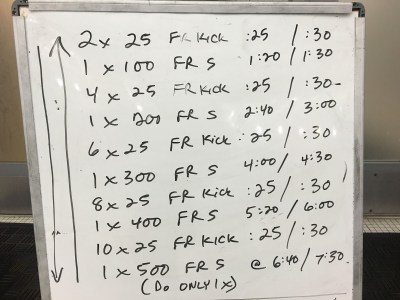 2 x 25 FR Kick :25 / :30
1 x 100 FR S 1:20 / 1:30
4 x 25 FR Kick :25 / :30
1 x 200 FR S 2:40 / 3:00
6 x 25 FR Kick :25 / :30
1 x 300 FR S 4:00 / 4:30
8 x 25 FR Kick :25 / :30
1 x 400 FR S 5:20 / 6:00
10 x 25 FR Kick :25 / :30
1 x 500 FR S @ 6:40 / 7:30
(Do ONLY 1x)